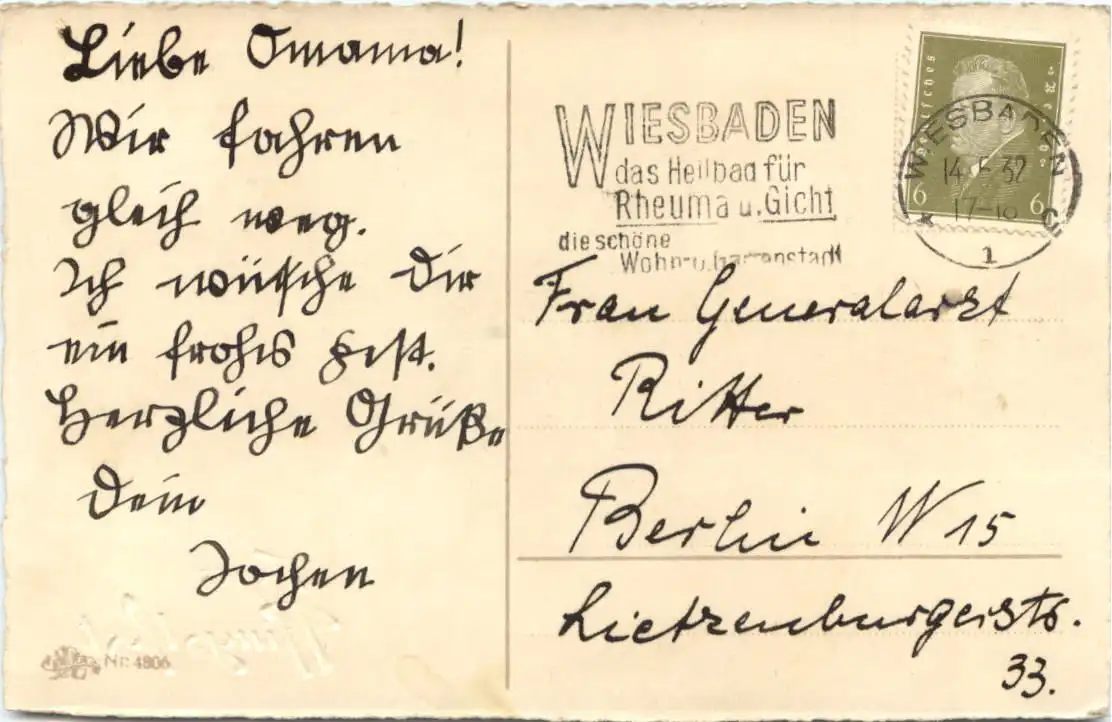 Liebe Omama!
Wir fahren
gleich weg.
Ich wünsche Dir
ein frohes Fest.
Herzliche Grüße
Dein
Jochen
Nr. 4806
WIESBADEN
das Heilbad für
Rheuma u. Gicht
die schöne
Wohn- u. Gartenstadt
Deutsches Reich
6 6
WIESBADEN
32
17-18
1
Frau Generalarzt
Ritter
Berlin W 15
Lietzenburgerstr.
33.